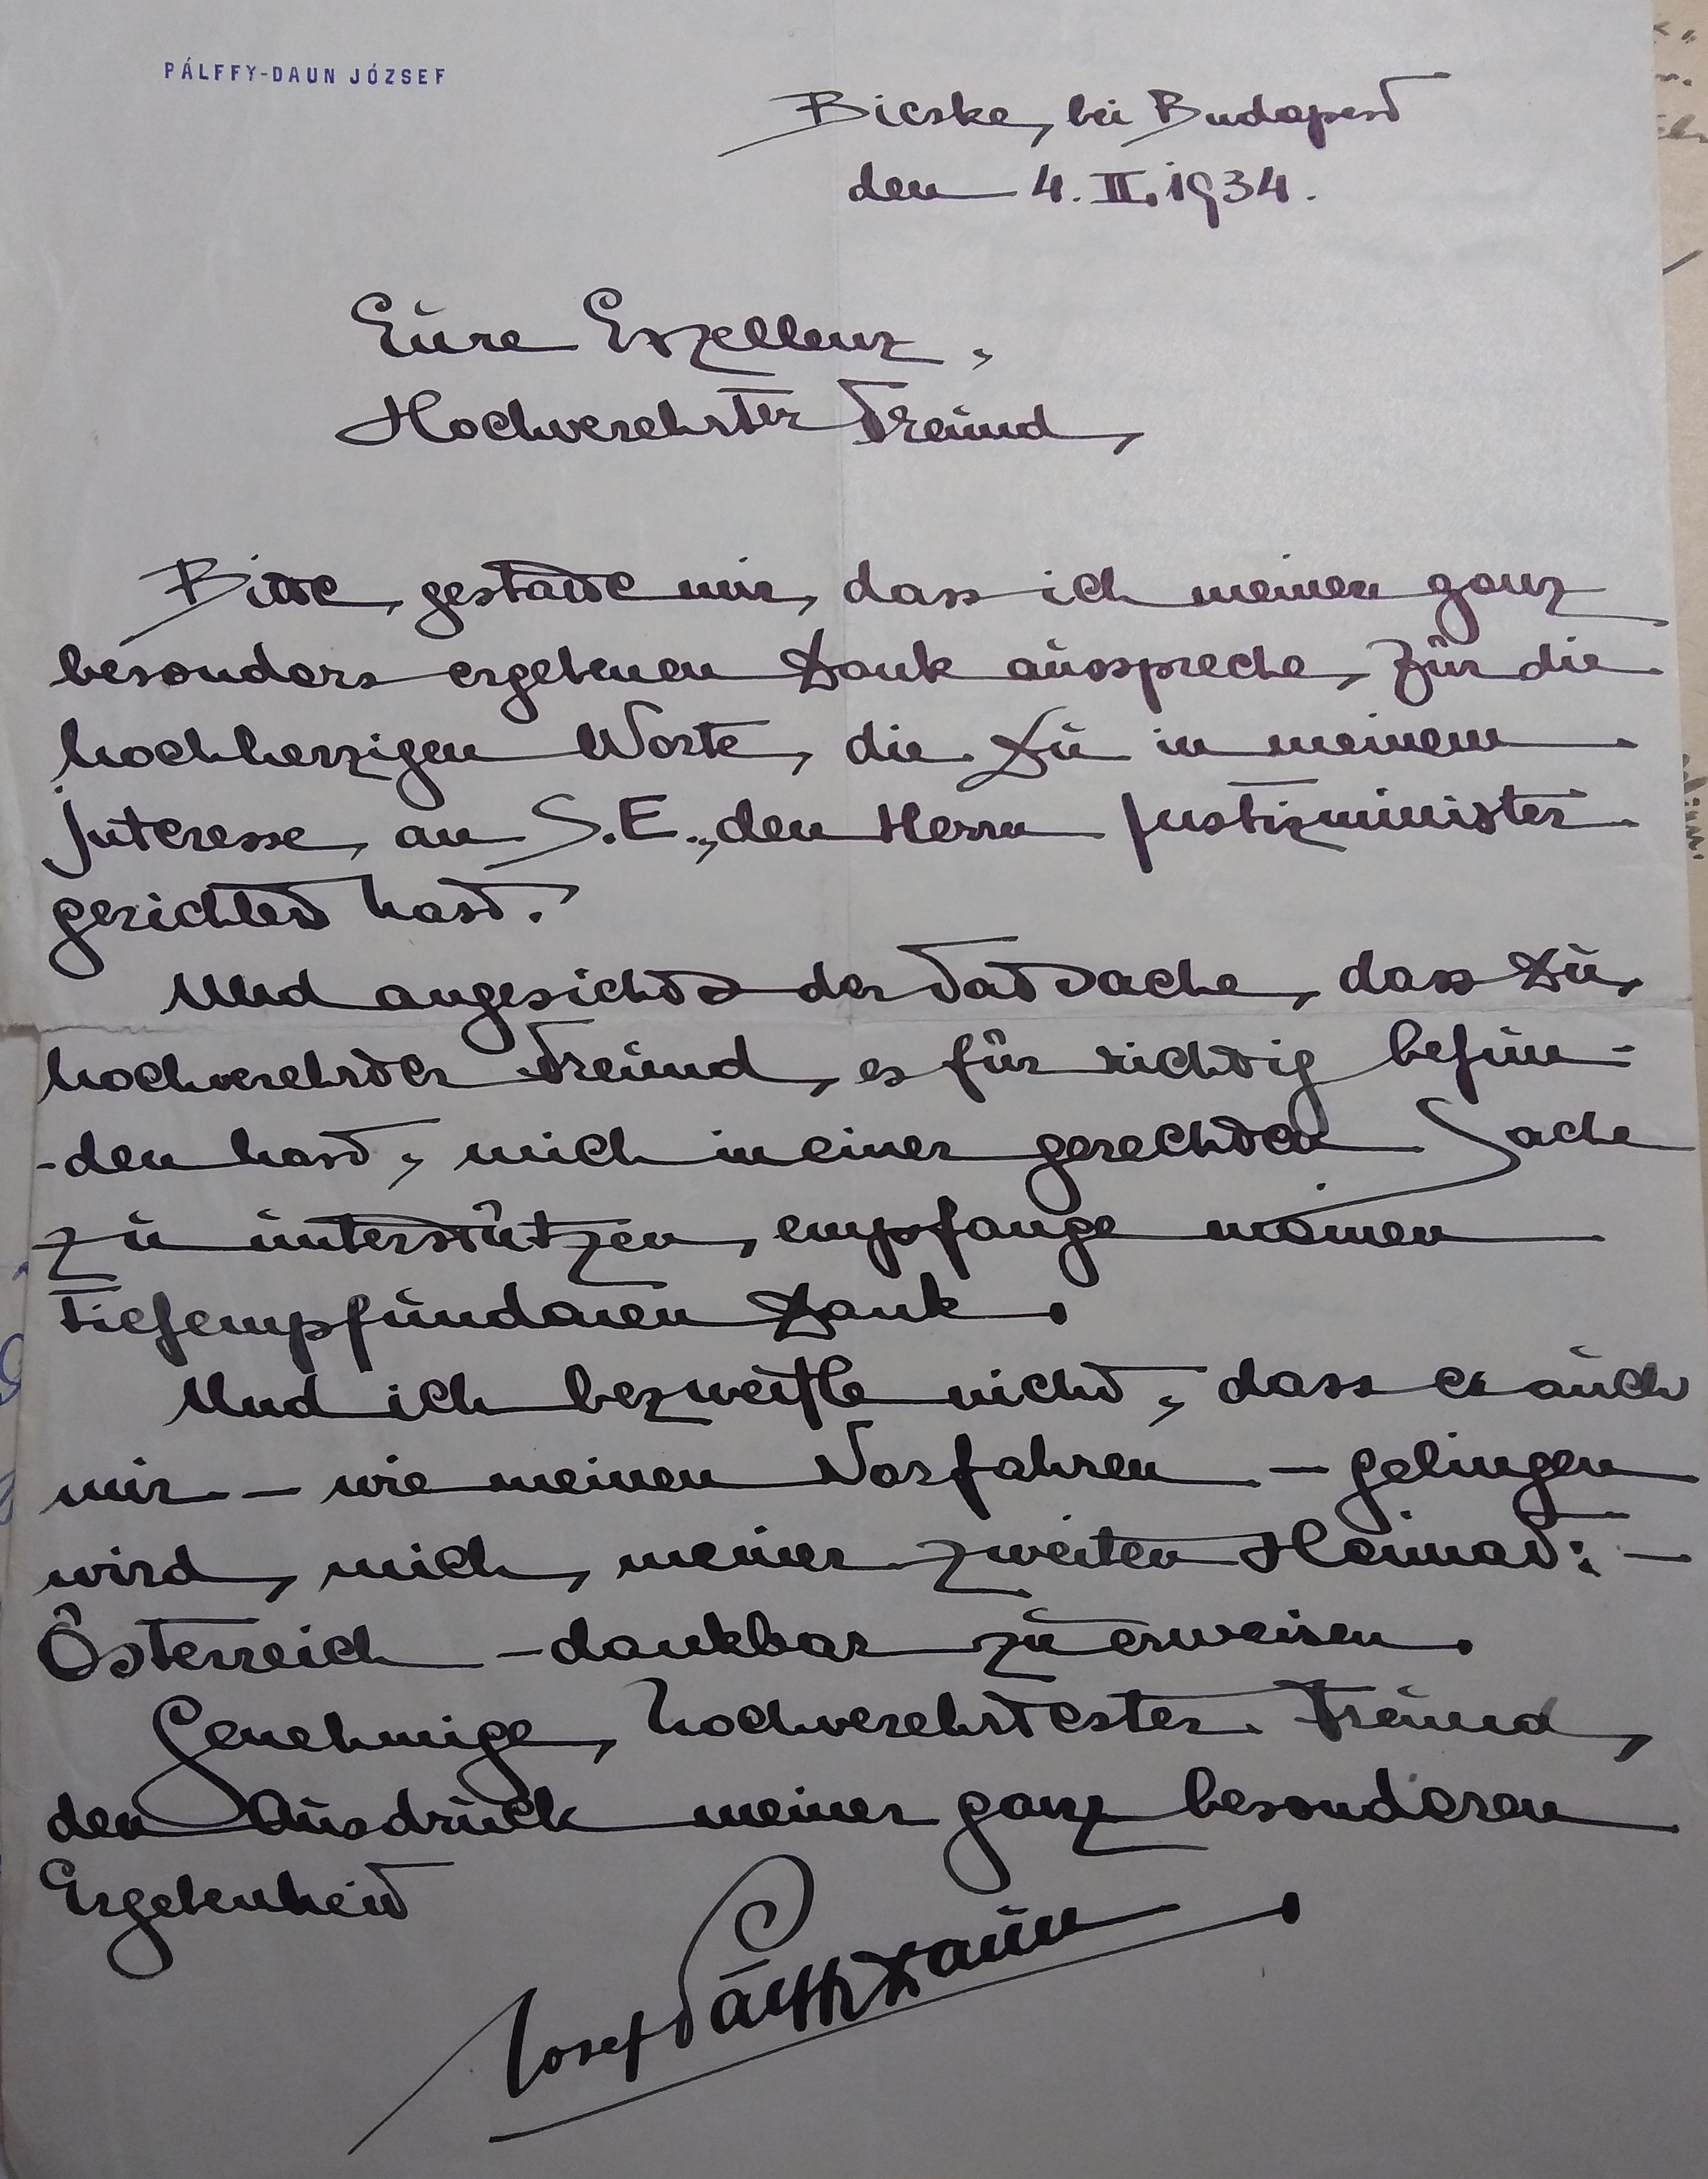 PÁLFFY-DAUN JÓZSEF
Bicske, bei Budapest
den 4. II. 1934.
Eure Exzellenz,
Hochverehrter Freund,
Bitte, gestatte mir, dass ich meinen ganz
besonders ergebenen Dank ausspreche, für die
hochherzigen Worte, die Du in meinem
Interesse, an S.E., den Herrn Justizminister
gerichtet hast.
Und angesichts der Tatsache, dass Du,
hochverehrter Freund, es für richtig befun-
-den hast, mich in einer gerechten Sache
zu unterstützen, empfange meinen
tiefempfundenen Dank.
Und ich bezweifle nicht, dass es auch
mir – wie meinen Vorfahren – gelingen
wird, mich, meiner zweiten Heimat: –
Österreich – dankbar zu erweisen.
Genehmige, hochverehrtester Freund,
den Ausdruck meiner ganz besonderen
Ergebenheit
Josef Pálffy Daun